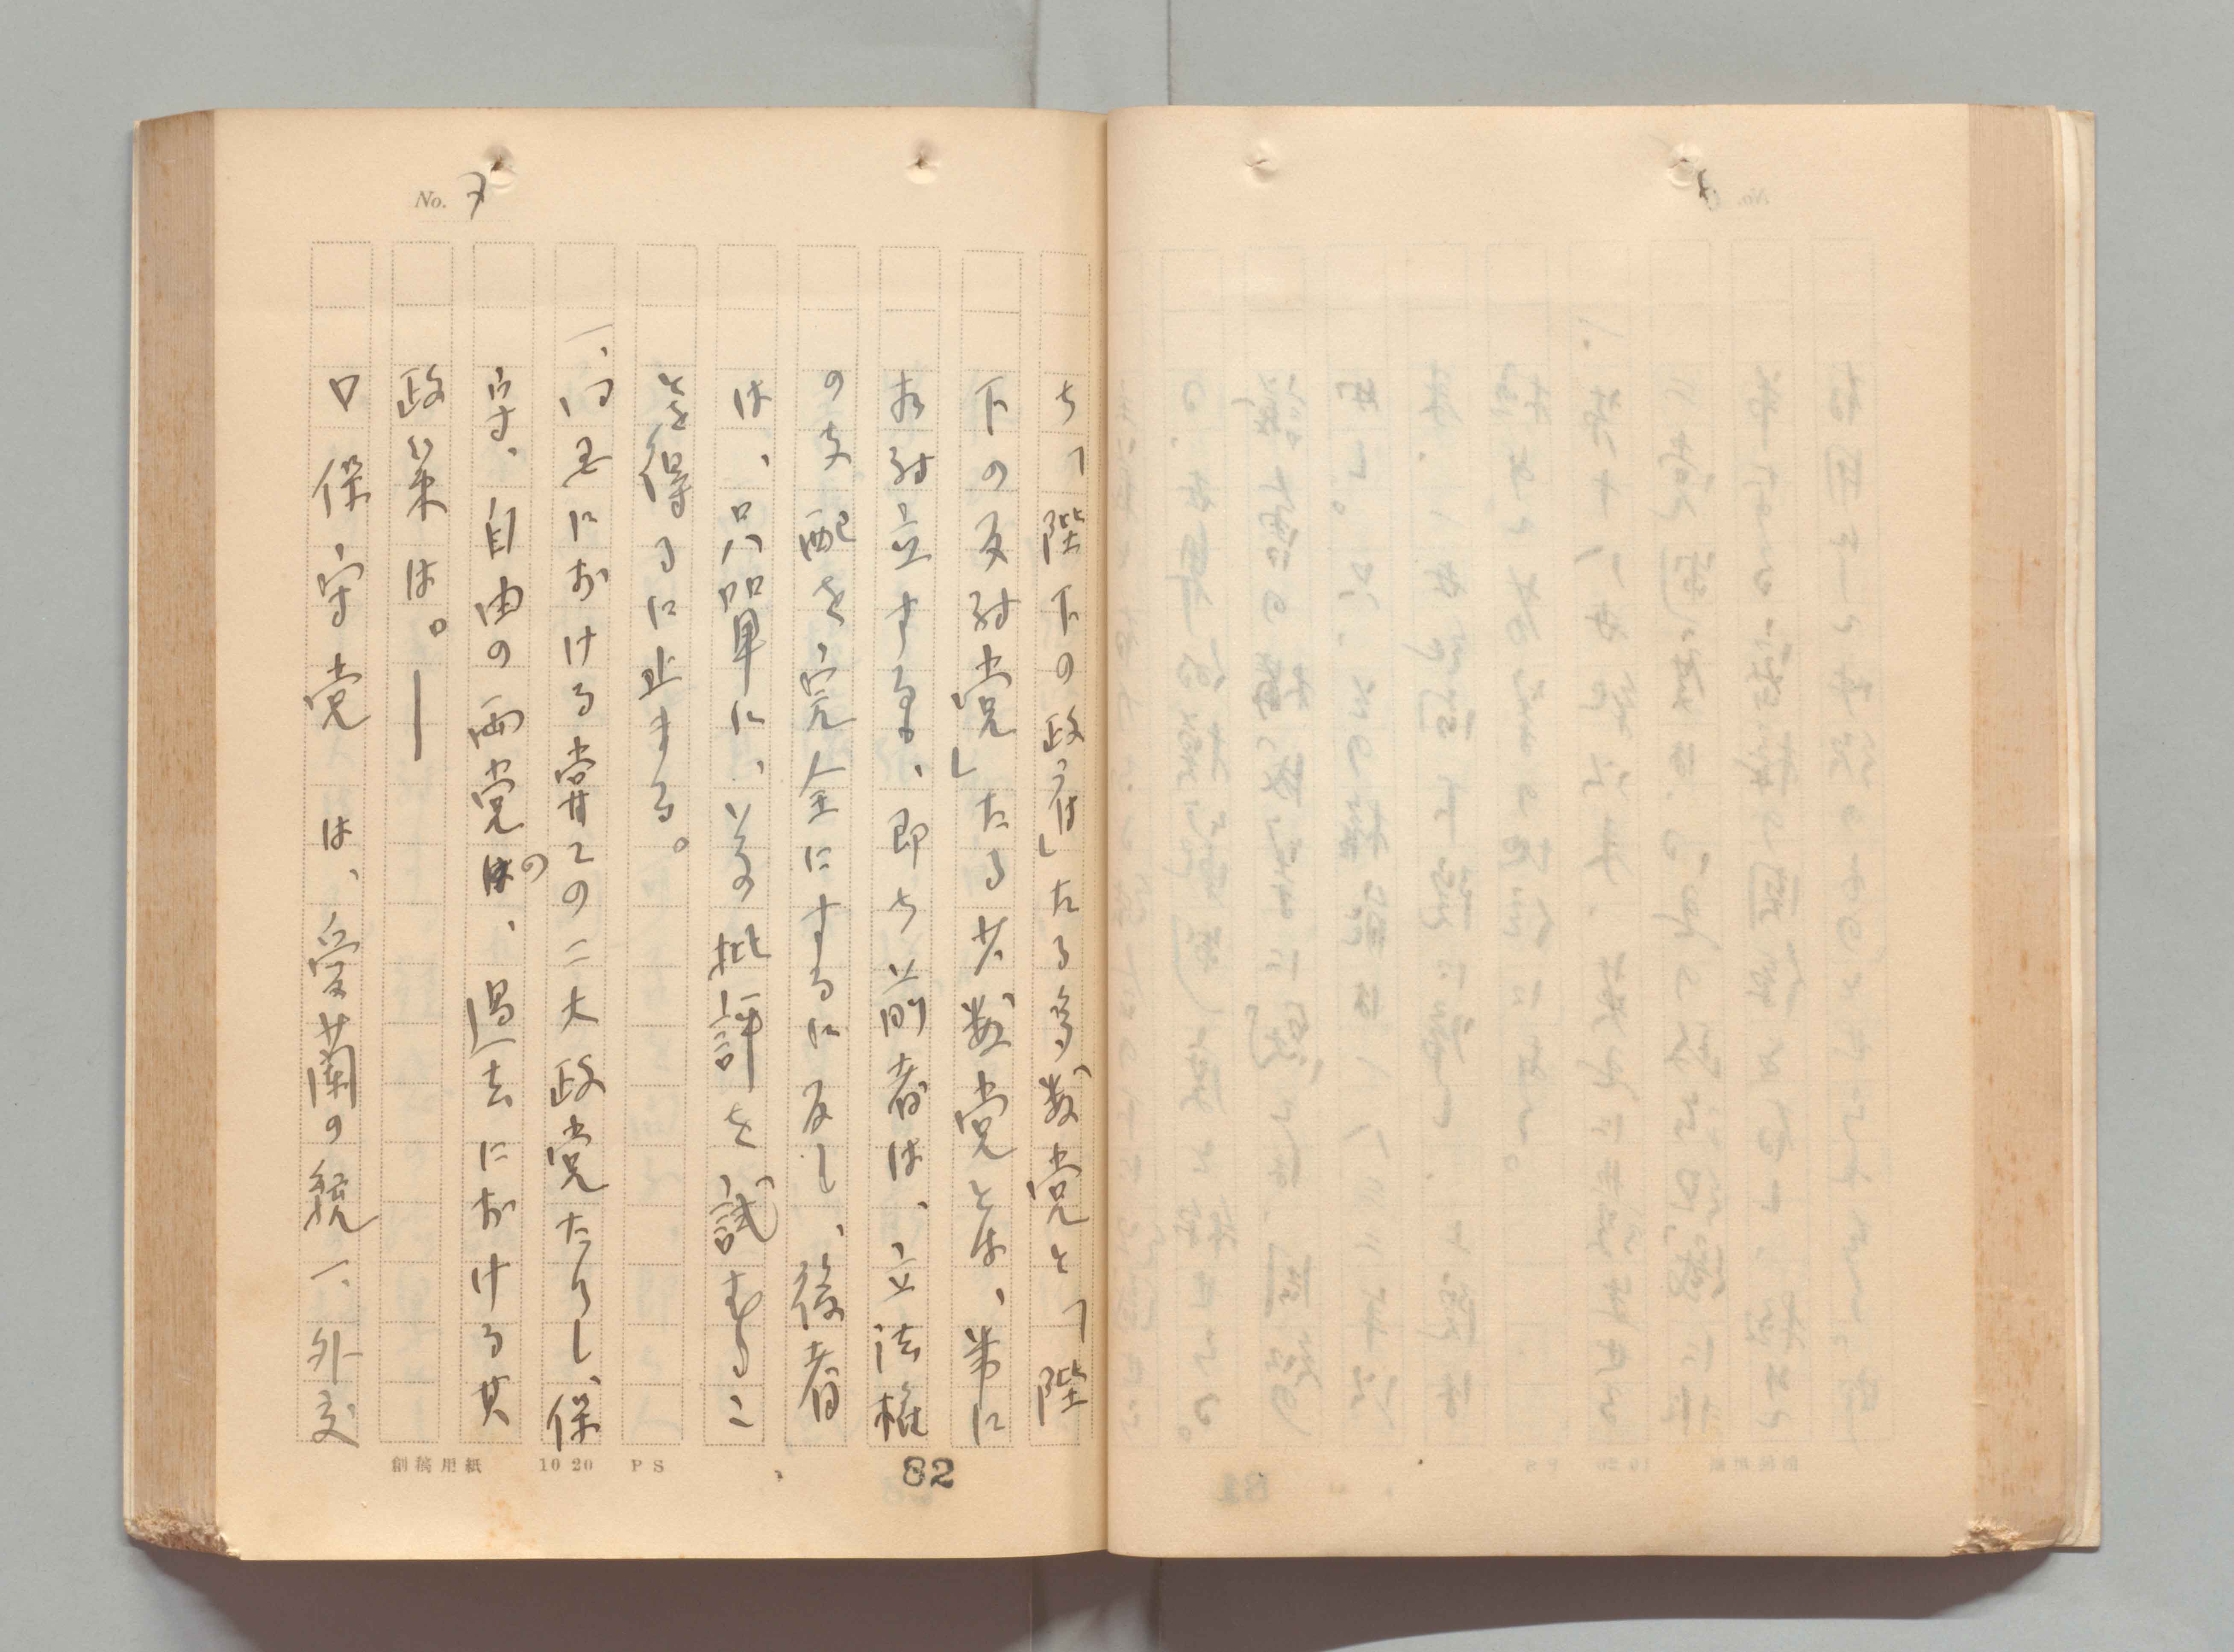 No. 7
ち「陛下の政府」たる多数党と「陛
下の反対党」たる少数党とは、常に
相対立する、即ち前者は、立法権
の支配を、完全にするに反し、後者
は、只単に、その批評を試むるこ
とを得るに止まる。
一、同国における曽ての二大政党たりし、保
守、自由の両党の、過去における其
政策は。―
保守党は、愛蘭の統一、外交
創稿用紙 10 20 PS
82